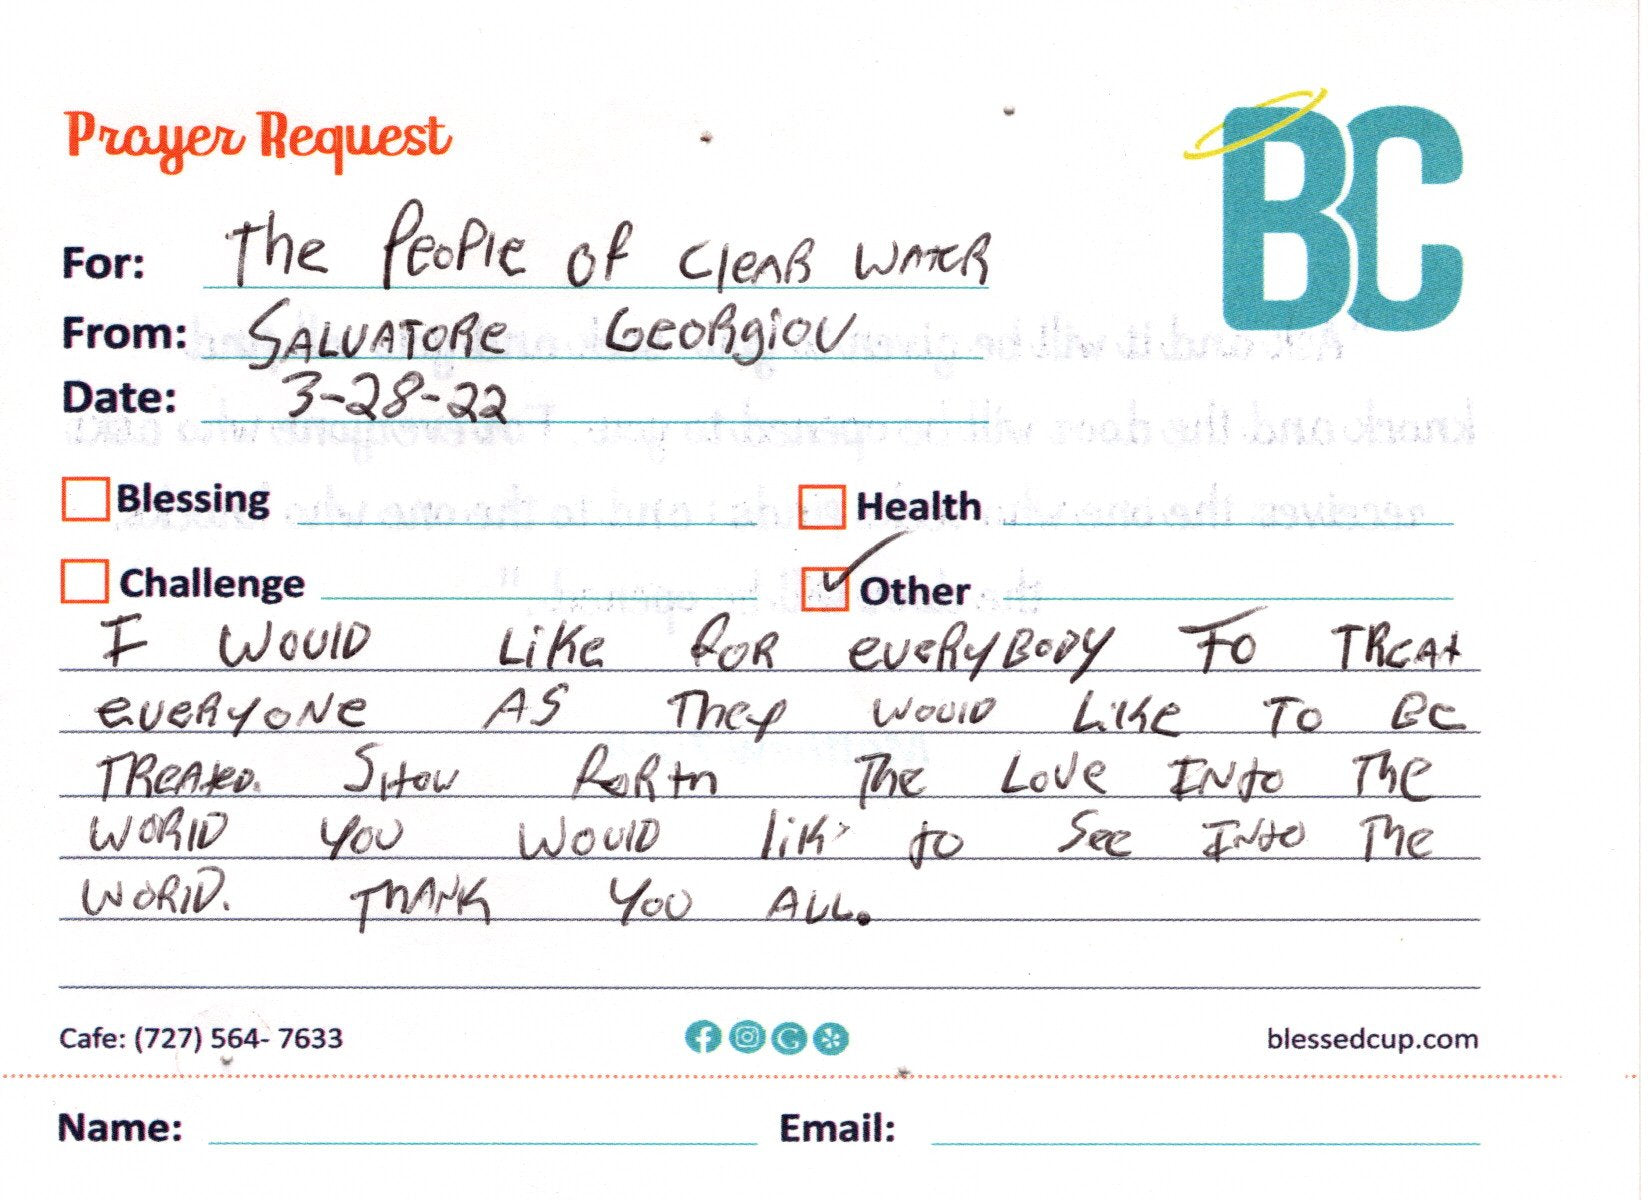 Prayer Request
BC
For: The People of Clear Water
From: Salvatore Georgiou
Date: 3-28-22
Blessing Health
Challenge Other
I would like for everybody to treat
everyone as they would like to be
treated. Show forth the love into the
world you would lik to see into the
world. Thank you all.
Cafe: (727) 564- 7633 blessedcup.com
Name: Email: